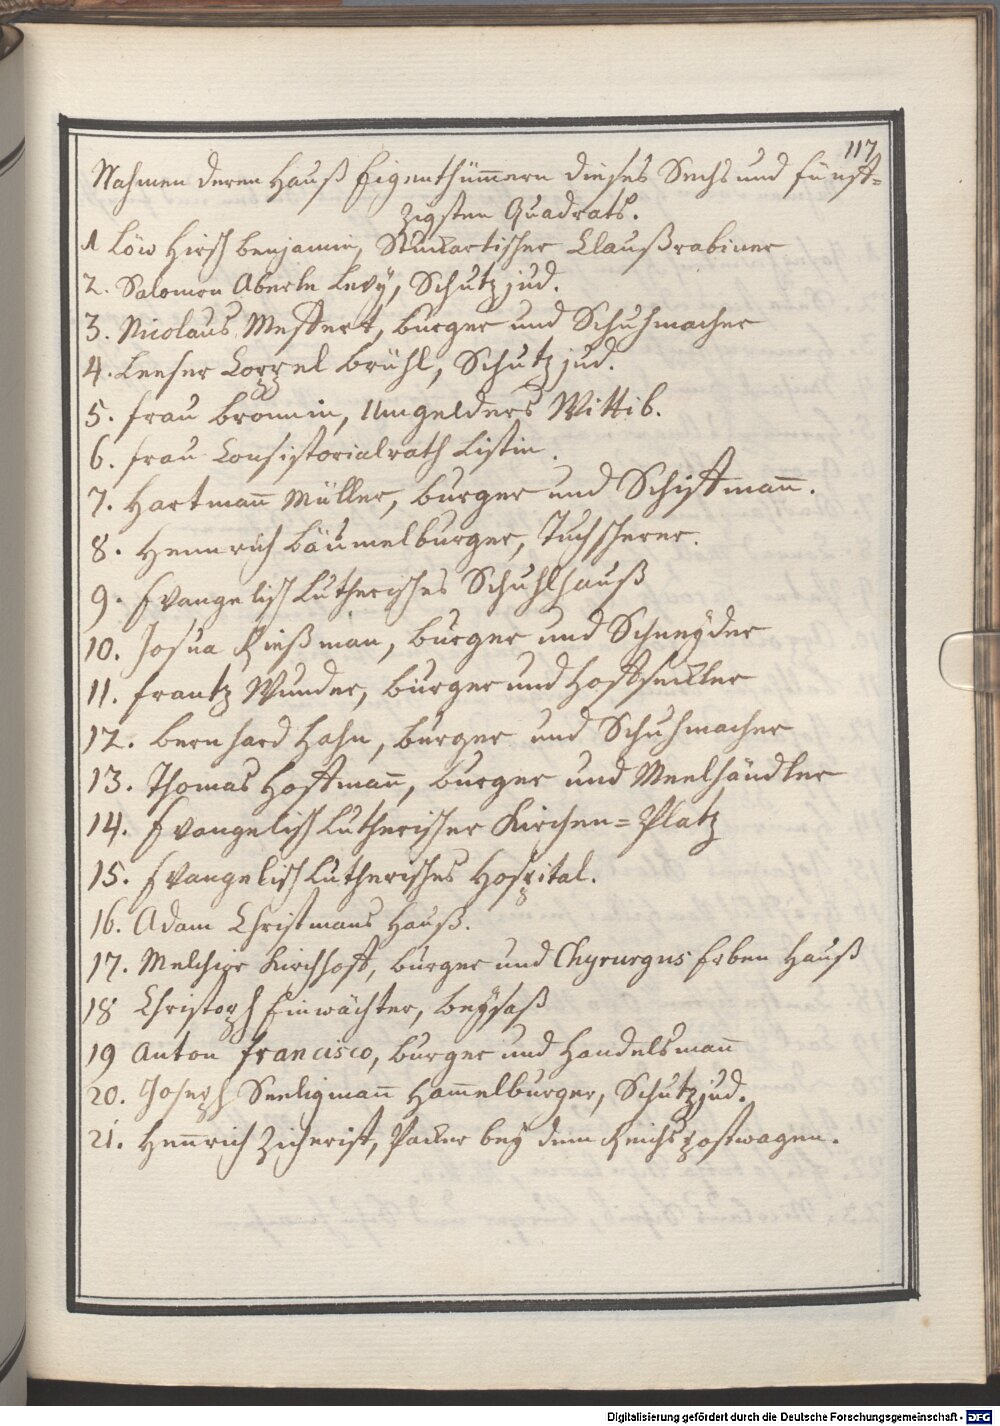 117
Nahmen deren Hauß Eigenthümmern dieses Sechs und fünff-
zigsten Quadrats.
1 Löw Hirsch benjamin, Stuckartischer Claußrabiner
2. Salomon Aberle Levÿ, Schutz jud.
3. Nicolaus Meffert, burger und Schuhmacher
4. Leeser Coppel brühl, Schutz jud.
5. frau brönnin, Umgelders Wittib.
6. frau Consistorialrath Listin.
7. Hartman̄ Müller, burger und Schiffman̄.
8. Hennrich bäumelburger, Tuchscherer.
9. Evangelisch Lutherisches Schuhlhauß
10. Josua Rießman, burger und Schneÿder
11. frantz Wunder, burger und Hoffseckler
12. bernhard Hahn, burger und Schuhmacher
13. Thomas Hoffman̄, burger und Meelhändler
14. Evangelisch Lutherischer Kirchen=Platz
15. Evangelisch Lutherisches Hospital.
16. Adam Christmans Hauß.
17. Melchior Kirchhoff, burger und Chyrurgus Erben Hauß
18 Christoph Einwächter, beÿsaß
19 Anton francisco, burger und Handelsman̄
20. Joseph Seeligman̄ Ham̄elburger, Schutz jud.
21. Hen̄rich Zicherist, Packer beÿ dem Reichs postwagen.
Digitalisierung gefördert durch die Deutsche Forschungsgemeinschaft - DFG